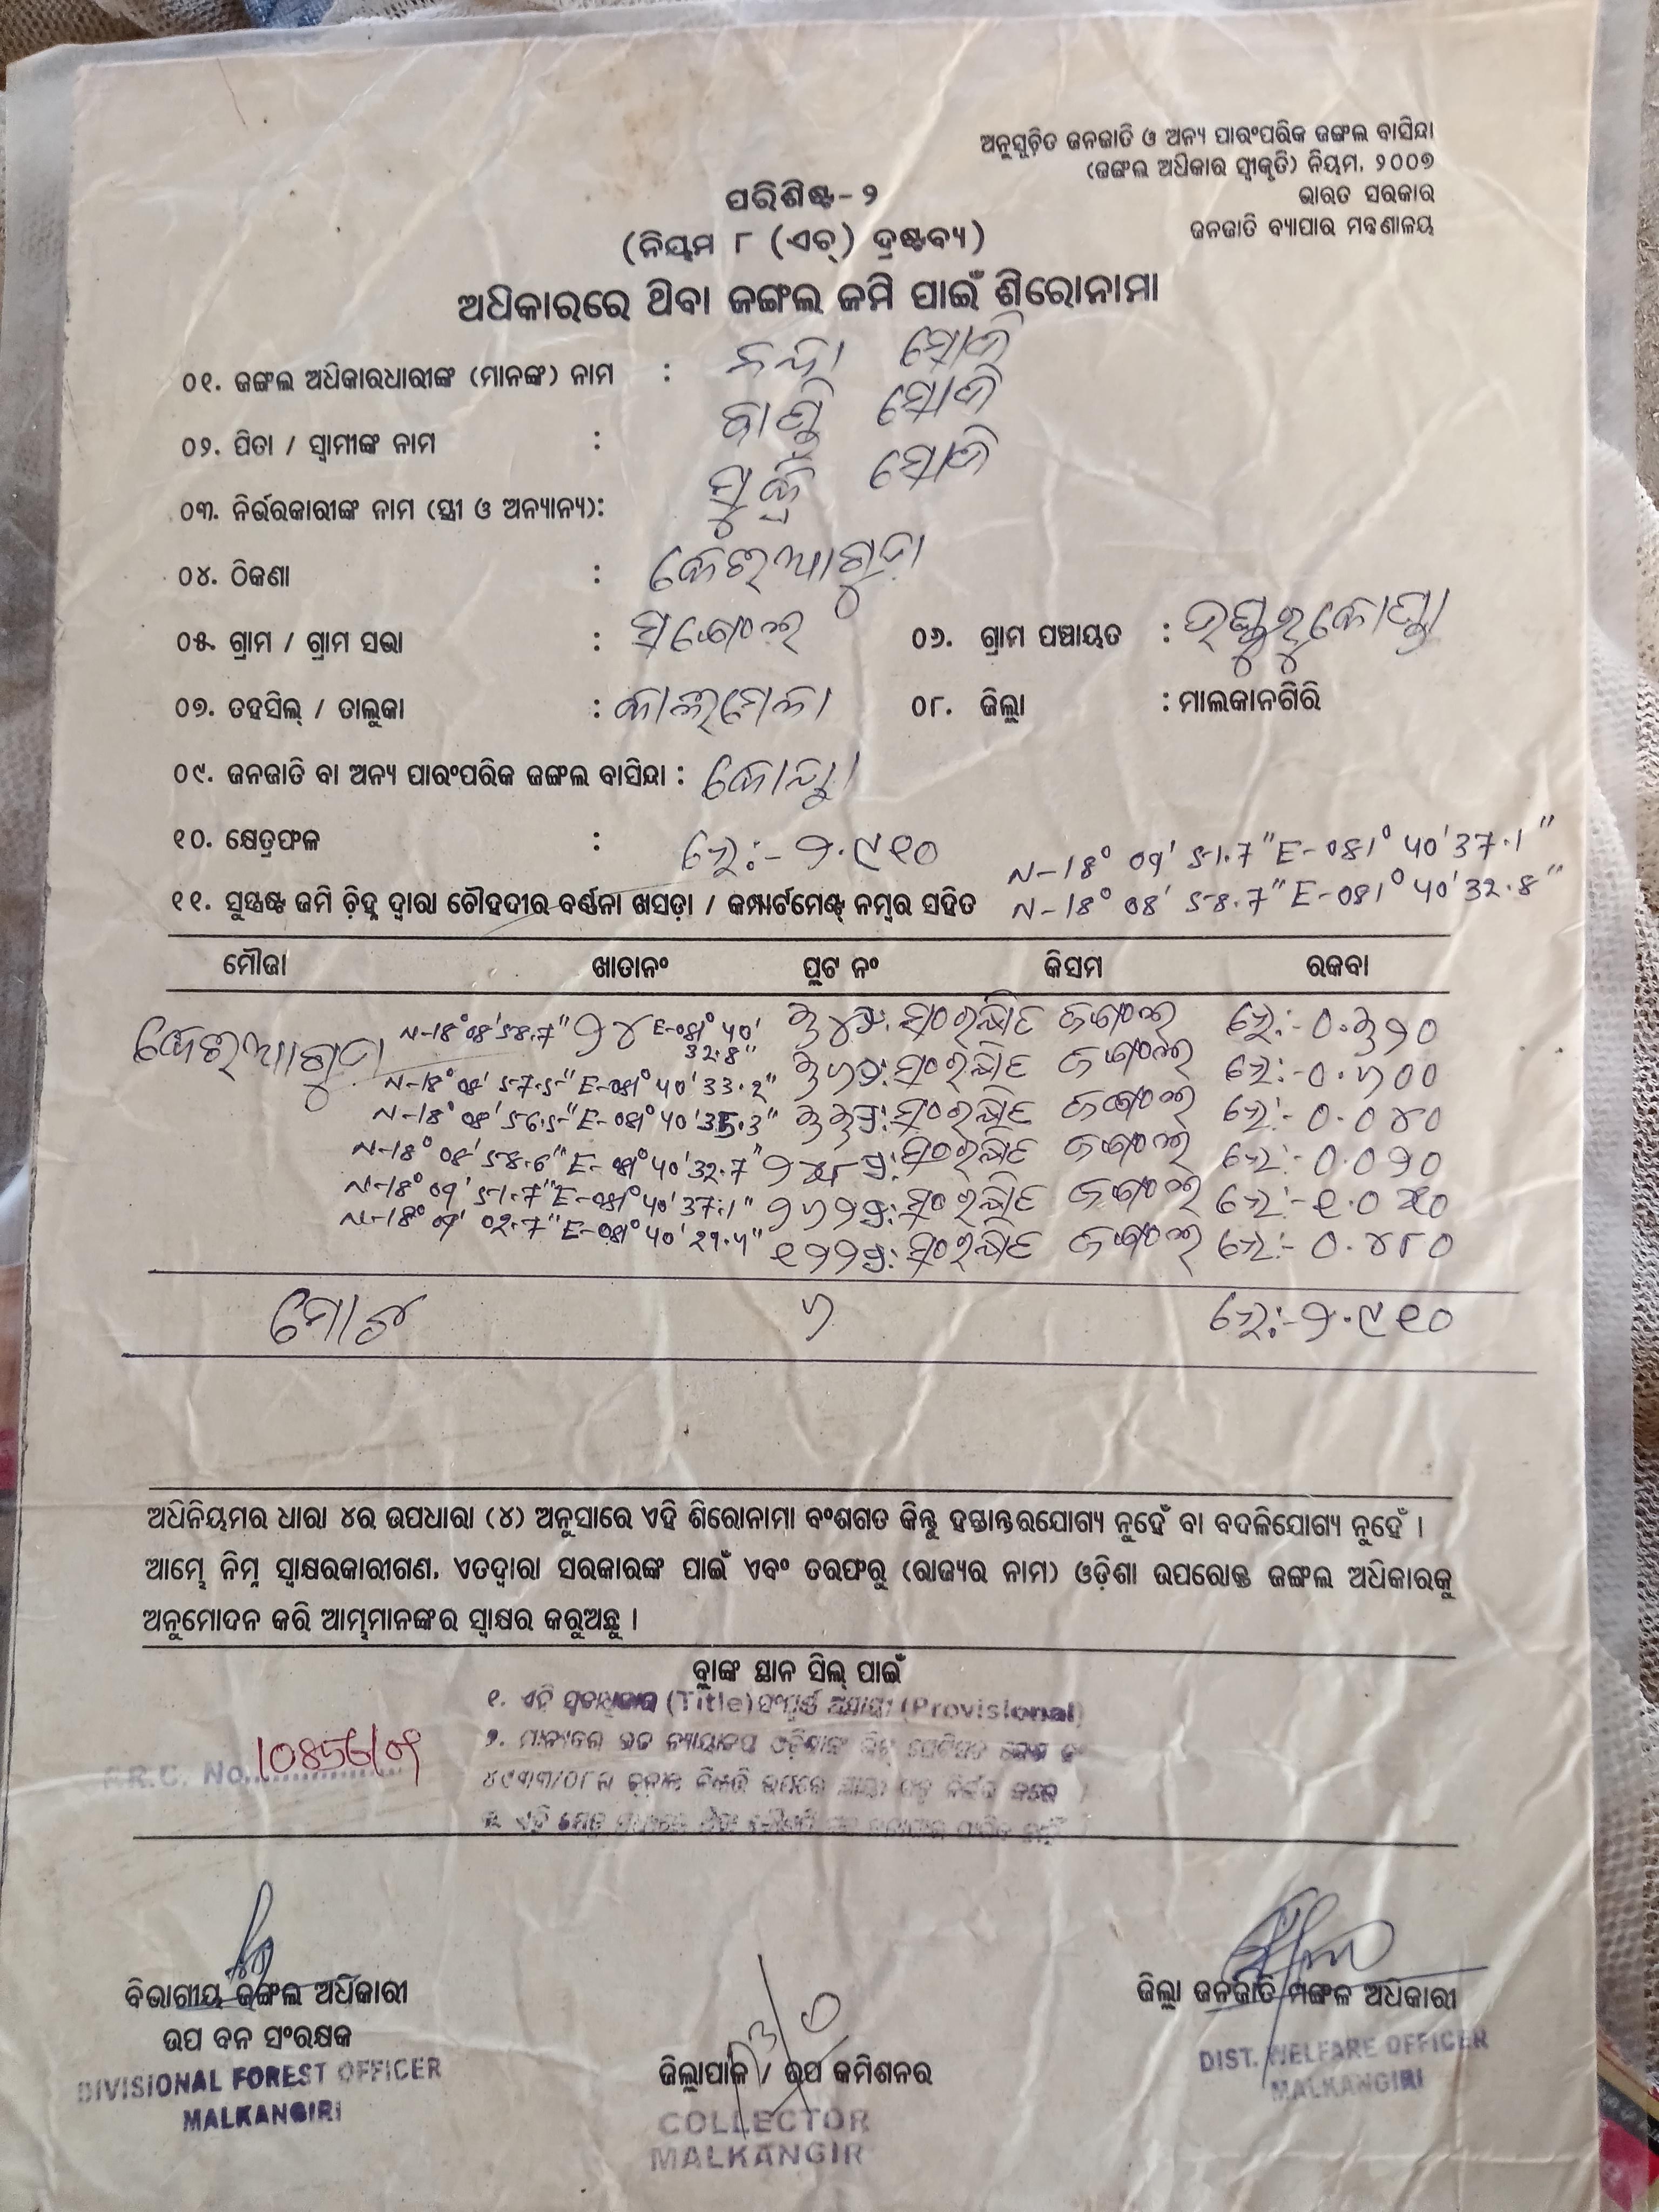 ଅନୁସୂଚିତ ଜନଜାତି ଓ ଅନ୍ୟ ପାରଂପରିକ ଜଙ୍ଗଲ ବାସିନ୍ଦା
(ଜଙ୍ଗଲ ଅଧିକାର ସ୍ୱୀକୃତି) ନିୟମ, ୨୦୦୭
ଭାରତ ସରକାର
ଜନଜାତି ବ୍ୟାପାର ମନ୍ତ୍ରଣାଳୟ
ପରିଶିଷ୍ଟ-୨
(ନିୟମ ୮ (ଏଚ୍) ଦ୍ରଷ୍ଟବ୍ୟ)
ଅଧିକାରରେ ଥିବା ଜଙ୍ଗଲ ଜମି ପାଇଁ ଶିରୋନାମା
୦୧. ଜଙ୍ଗଲ ଅଧିକାରଧାରୀଙ୍କ (ମାନଙ୍କ) ନାମ : ନନ୍ଦା ସୋଡି
୦୨. ପିତା / ସ୍ୱାମୀଙ୍କ ନାମ : ସୋଡି
୦୩. ନିର୍ଭରକାରୀଙ୍କ ନାମ (ସ୍ତ୍ରୀ ଓ ଅନ୍ୟାନ୍ୟ): ସୋଡି
୦୪. ଠିକଣା : କେଟଆଗୁଡା
୦୫. ଗ୍ରାମ / ଗ୍ରାମ ସଭା :
୦୬. ଗ୍ରାମ ପଞ୍ଚାୟତ :
୦୭. ତହସିଲ୍ / ତାଲୁକା : କାଲିମେଳା
୦୮. ଜିଲ୍ଲା : ମାଲକାନଗିରି
୦୯. ଜନଜାତି ବା ଅନ୍ୟ ପାରଂପରିକ ଜଙ୍ଗଲ ବାସିନ୍ଦା : କୋୟା
୧୦. କ୍ଷେତ୍ରଫଳ : ହେ:- ୨.୯୧୦
N-18° 09' 51.7" E-081° 40' 37.1"
୧୧. ସୁସ୍ପଷ୍ଟ ଜମି ଚିହ୍ନ ଦ୍ୱାରା ଚୌହଦୀର ବର୍ଣ୍ଣନା ଖସଡ଼ା / କମ୍ପାର୍ଟମେଣ୍ଟ୍ ନମ୍ବର ସହିତ N-18° 08' 58.7" E-081° 40' 32.8"
ମୌଜା ଖାତାନଂ ପ୍ଲଟ ନଂ କିସମ ରକବା
N-18° 08' 58.7" ୨୪ E-081° 40' 32.8" ସଂରକ୍ଷିତ ଜଙ୍ଗଲ ହେ:- ୦.୩୨୦
N-18° 08' 57.5" E-081° 40' 33.2" ସଂରକ୍ଷିତ ଜଙ୍ଗଲ ହେ:- ୦.୬୦୦
N-18° 08' 56.5" E-081° 40' 35.3" ସଂରକ୍ଷିତ ଜଙ୍ଗଲ ହେ:- ୦.୦୪୦
N-18° 08' 58.6" E-081° 40' 32.7" ସଂରକ୍ଷିତ ଜଙ୍ଗଲ ହେ:-
N-18° 09' 51.7" E-081° 40' 37.1" ସଂରକ୍ଷିତ ଜଙ୍ଗଲ ହେ:-
N-18° 09' 02.7" E-081° 40' 29.4" ସଂରକ୍ଷିତ ଜଙ୍ଗଲ ହେ:- ୦.୪୮୦
ମୋଟ ୬ ହେ:- ୨.୯୧୦
ଅଧିନିୟମର ଧାରା ୪ର ଉପଧାରା (୪) ଅନୁସାରେ ଏହି ଶିରୋନାମା ବଂଶଗତ କିନ୍ତୁ ହସ୍ତାନ୍ତରଯୋଗ୍ୟ ନୁହେଁ ବା ବଦଳିଯୋଗ୍ୟ ନୁହେଁ ।
ଆମ୍ଭେ ନିମ୍ନ ସ୍ୱାକ୍ଷରକାରୀଗଣ, ଏତଦ୍ୱାରା ସରକାରଙ୍କ ପାଇଁ ଏବଂ ତରଫରୁ (ରାଜ୍ୟର ନାମ) ଓଡ଼ିଶା ଉପରୋକ୍ତ ଜଙ୍ଗଲ ଅଧିକାରକୁ
ଅନୁମୋଦନ କରି ଆମ୍ଭମାନଙ୍କର ସ୍ୱାକ୍ଷର କରୁଅଛୁ ।
ବ୍ଲାଙ୍କ ସ୍ଥାନ ସିଲ୍ ପାଇଁ
୧. ଏହି (Title) ସଂପୂର୍ଣ୍ଣ ଅସ୍ଥାୟୀ (Provisional)
୨. ମାନ୍ୟବର ଉଚ୍ଚ ନ୍ୟାୟାଳୟ
F.R.C. No. 10856/09
ବିଭାଗୀୟ ଜଙ୍ଗଲ ଅଧିକାରୀ
ଉପ ବନ ସଂରକ୍ଷକ
DIVISIONAL FOREST OFFICER
MALKANGIRI
ଜିଲ୍ଲାପାଳ / ଉପ କମିଶନର
COLLECTOR
MALKANGIR
ଜିଲ୍ଲା ଜନଜାତି ମଙ୍ଗଳ ଅଧିକାରୀ
DIST. WELFARE OFFICER
MALKANGIRI